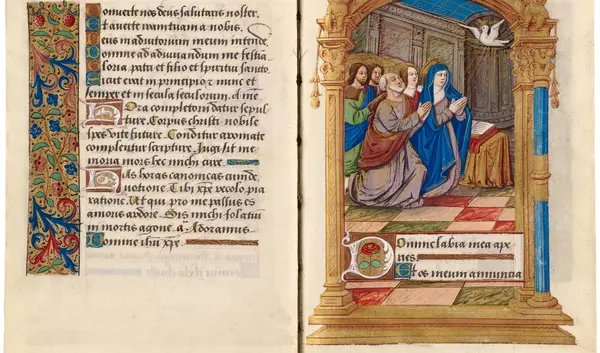 Converte nos deus salutaris noster.
Et averte iram tuam a nobis.
Deus in adiutorium meum intende
Domine ad adiuvandum me festi
Gloria patri et filio et spiritui sancto
Sicut erat in principio et nunc et
semper et in secula seculorum. amē
Hora completorii datur sepul
ture. Corpus christi nobile
spes vite future. Conditur aromate
complentur scripture. Jugi sit me
moria mors hec michi cure.
Has horas canonicas cum de
votione. Tibi xp̄e recolo pia
ratione. Ut qui pro me passus es
amoris ardore. Sis michi solatiū
in mortis agone. a. Adoramus
Domine ihū xp̄e.
Domine labia mea ape
ries
Et os meum annuncia